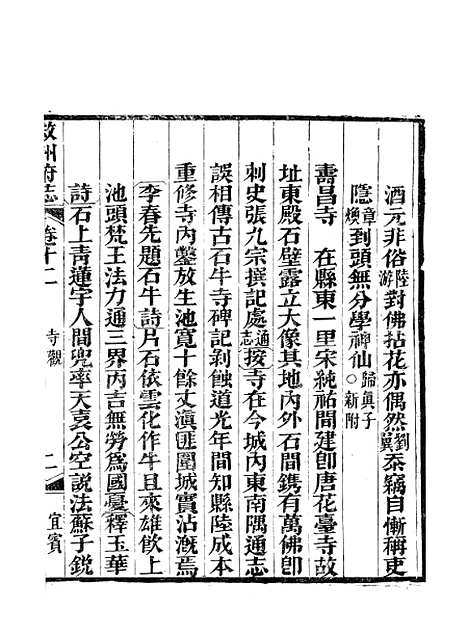 酒元非俗陸游對佛拈花亦偶然劉翼忝竊自慚稱吏
隱章煥到頭無分學神仙歸真子○新附
壽昌寺　在縣東一里宋純祐間建卽唐花臺寺故
址東殿石壁露立大像其地內外石間鐫有萬佛卽
刺史張九宗撰記處通志按寺在今城內東南隅通志
誤相傳古石牛寺碑記剝蝕道光年間知縣陸成本
重修寺內鑿放生池寬十餘丈滇匪圍城實沾溉焉
李春先題石牛詩片石依雲化作牛且來雄飲上
池頭梵王法力通三界丙吉無勞為國憂釋玉華
詩石上靑蓮宇人間兜率天袁公空說法蘇子銳
敘州府志　卷十二　寺觀　二　宜賓